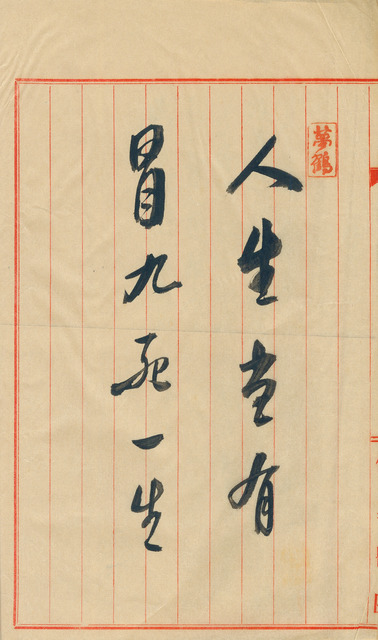 萬鶴
人生当有
冒九死一生